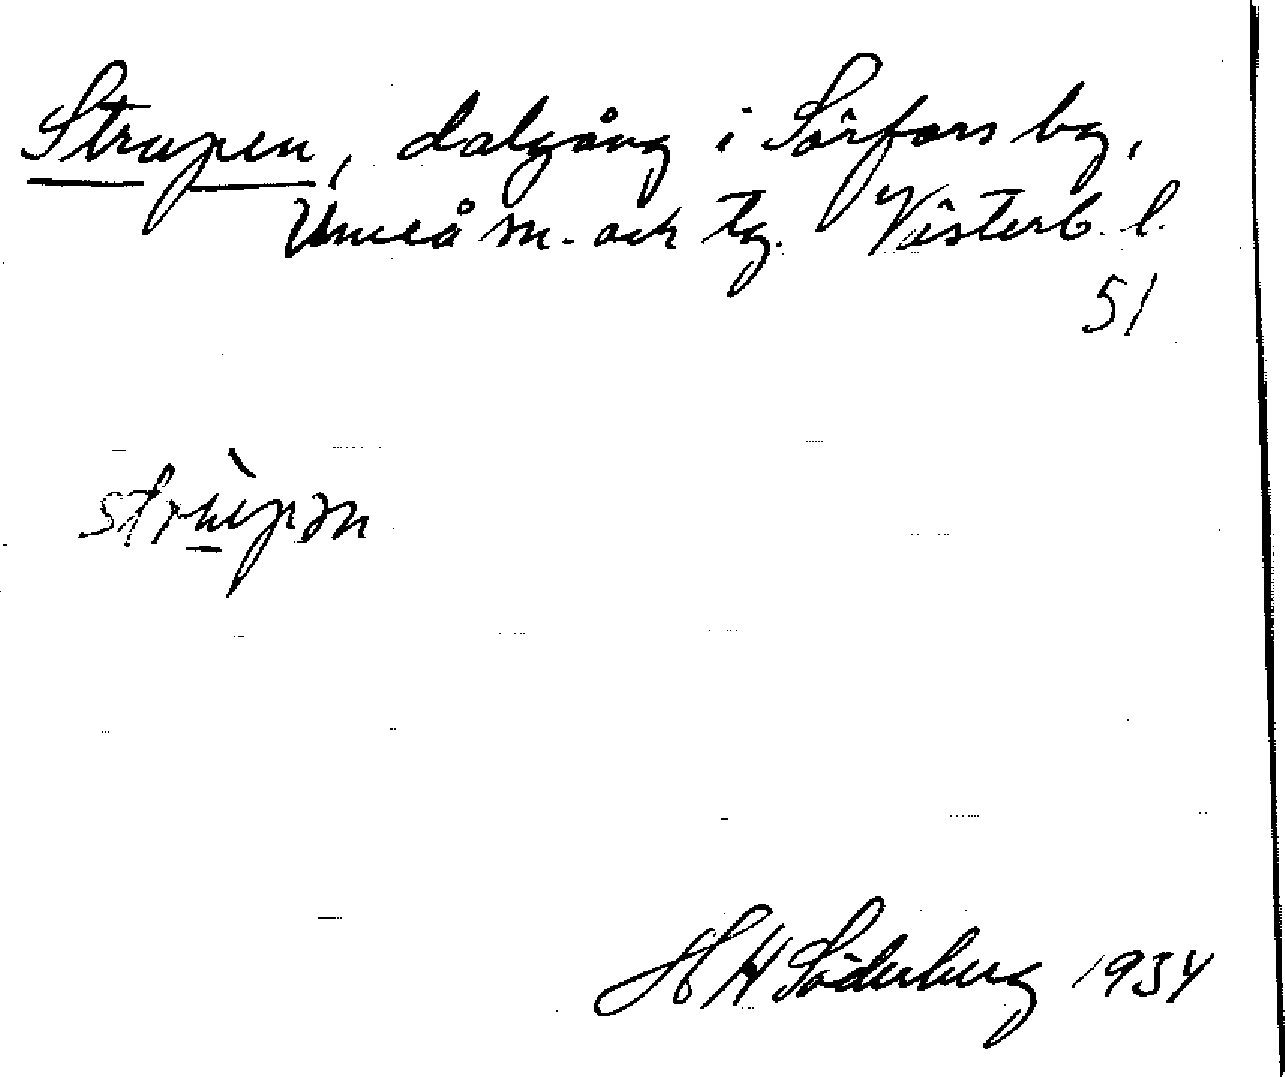 Strupen, dalgång i Sörfors by,
Umeå sn. och tg. Västerb. l.
51
strùpən
H H Söderberg 1934